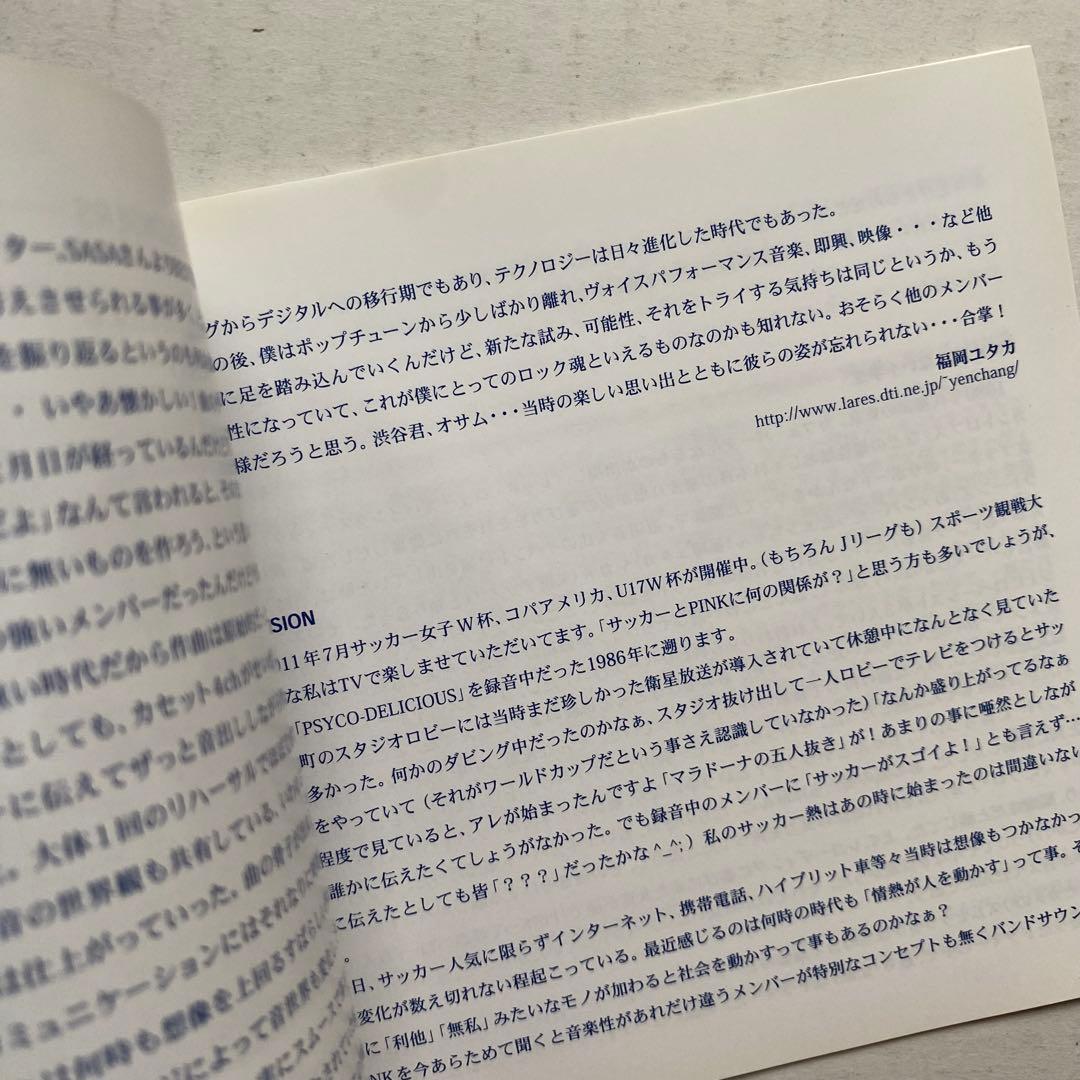 ター、SASAさんより
考えさせられる事が多く、
を振り返るというのも
・いやあ懐かしい！
月日が経っているんだ
だよ」なんて言われると、
に無いものを作ろう、という
強いメンバーだったんだけど
い時代だから作曲は
としても、カセット4chが
に伝えてザっと音出ししたが
大体1回のリハーサルで
音の世界観も共有している、
は仕上がっていった。曲の骨子
ミュニケーションにはそれなりに
は何時も想像を上回るすばらし
によって音世界も変
にスムーズで
グからデジタルへの移行期でもあり、テクノロジーは日々進化した時代でもあった。
の後、僕はポップチューンから少しばかり離れ、ヴォイスパフォーマンス音楽、即興、映像・・・など他
に足を踏み込んでいくんだけど、新たな試み、可能性、それをトライする気持ちは同じというか、もう
性になっていて、これが僕にとってのロック魂といえるものなのかも知れない。おそらく他のメンバー
様だろうと思う。渋谷君、オサム・・・当時の楽しい思い出とともに彼らの姿が忘れられない・・・合掌！
福岡ユタカ
http://www.lares.dti.ne.jp/~yenchang/
SION
11年7月サッカー女子W杯、コパアメリカ、U17W杯が開催中。（もちろんJリーグも）スポーツ観戦大
な私はTVで楽しませていただいてます。「サッカーとPINKに何の関係が？」と思う方も多いでしょうが、
「PSYCO-DELICIOUS」を録音中だった1986年に遡ります。
町のスタジオロビーには当時まだ珍しかった衛星放送が導入されていて休憩中になんとなく見ていた
多かった。何かのダビング中だったのかなぁ、スタジオ抜け出して一人ロビーでテレビをつけるとサッ
をやっていて（それがワールドカップだという事さえ認識していなかった）「なんか盛り上がってるなぁ
程度で見ていると、アレが始まったんですよ「マラドーナの五人抜き」が！あまりの事に唖然としなが
誰かに伝えたくてしょうがなかった。でも録音中のメンバーに「サッカーがスゴイよ！」とも言えず…
に伝えたとしても皆「？？？」だったかな^_^;）私のサッカー熱はあの時に始まったのは間違いない
。
日、サッカー人気に限らずインターネット、携帯電話、ハイブリット車等々当時は想像もつかなかっ
変化が数え切れない程起こっている。最近感じるのは何時の時代も「情熱が人を動かす」って事。そ
に「利他」「無私」みたいなモノが加わると社会を動かすって事もあるのかなぁ？
NKを今あらためて聞くと音楽性があれだけ違うメンバーが特別なコンセプトも無くバンドサウン